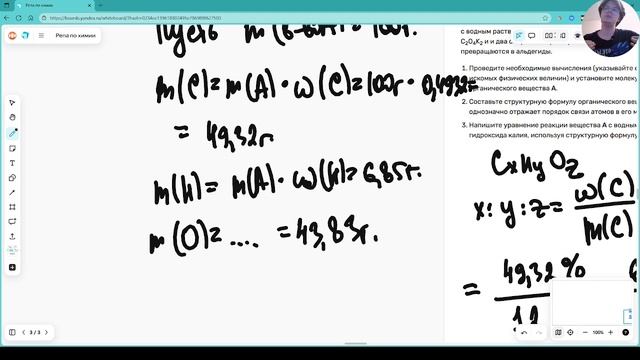 Репа по химии
Пусть m(в-ва)= 100г.
m(C)= m(A)·ω(C)=100г·0,4932=
= 49,32г
m(H)= m(A)·ω(H)=6,85г.
m(O)= .... =43,83г.
3 / 3
100%
с водным раств
C₂O₄K₂ и и два с
превращаются в альдегиды.
1. Проведите необходимые вычисления (указывайте
искомых физических величин) и установите молек
органического вещества А.
2. Составьте структурную формулу органического ве
однозначно отражает порядок связи атомов в его м
3. Напишите уравнение реакции вещества А с водны
гидроксида калия, используя структурную формулу
CxHyOz
x:y:z= ω(C)
M(C)
= 49,32%